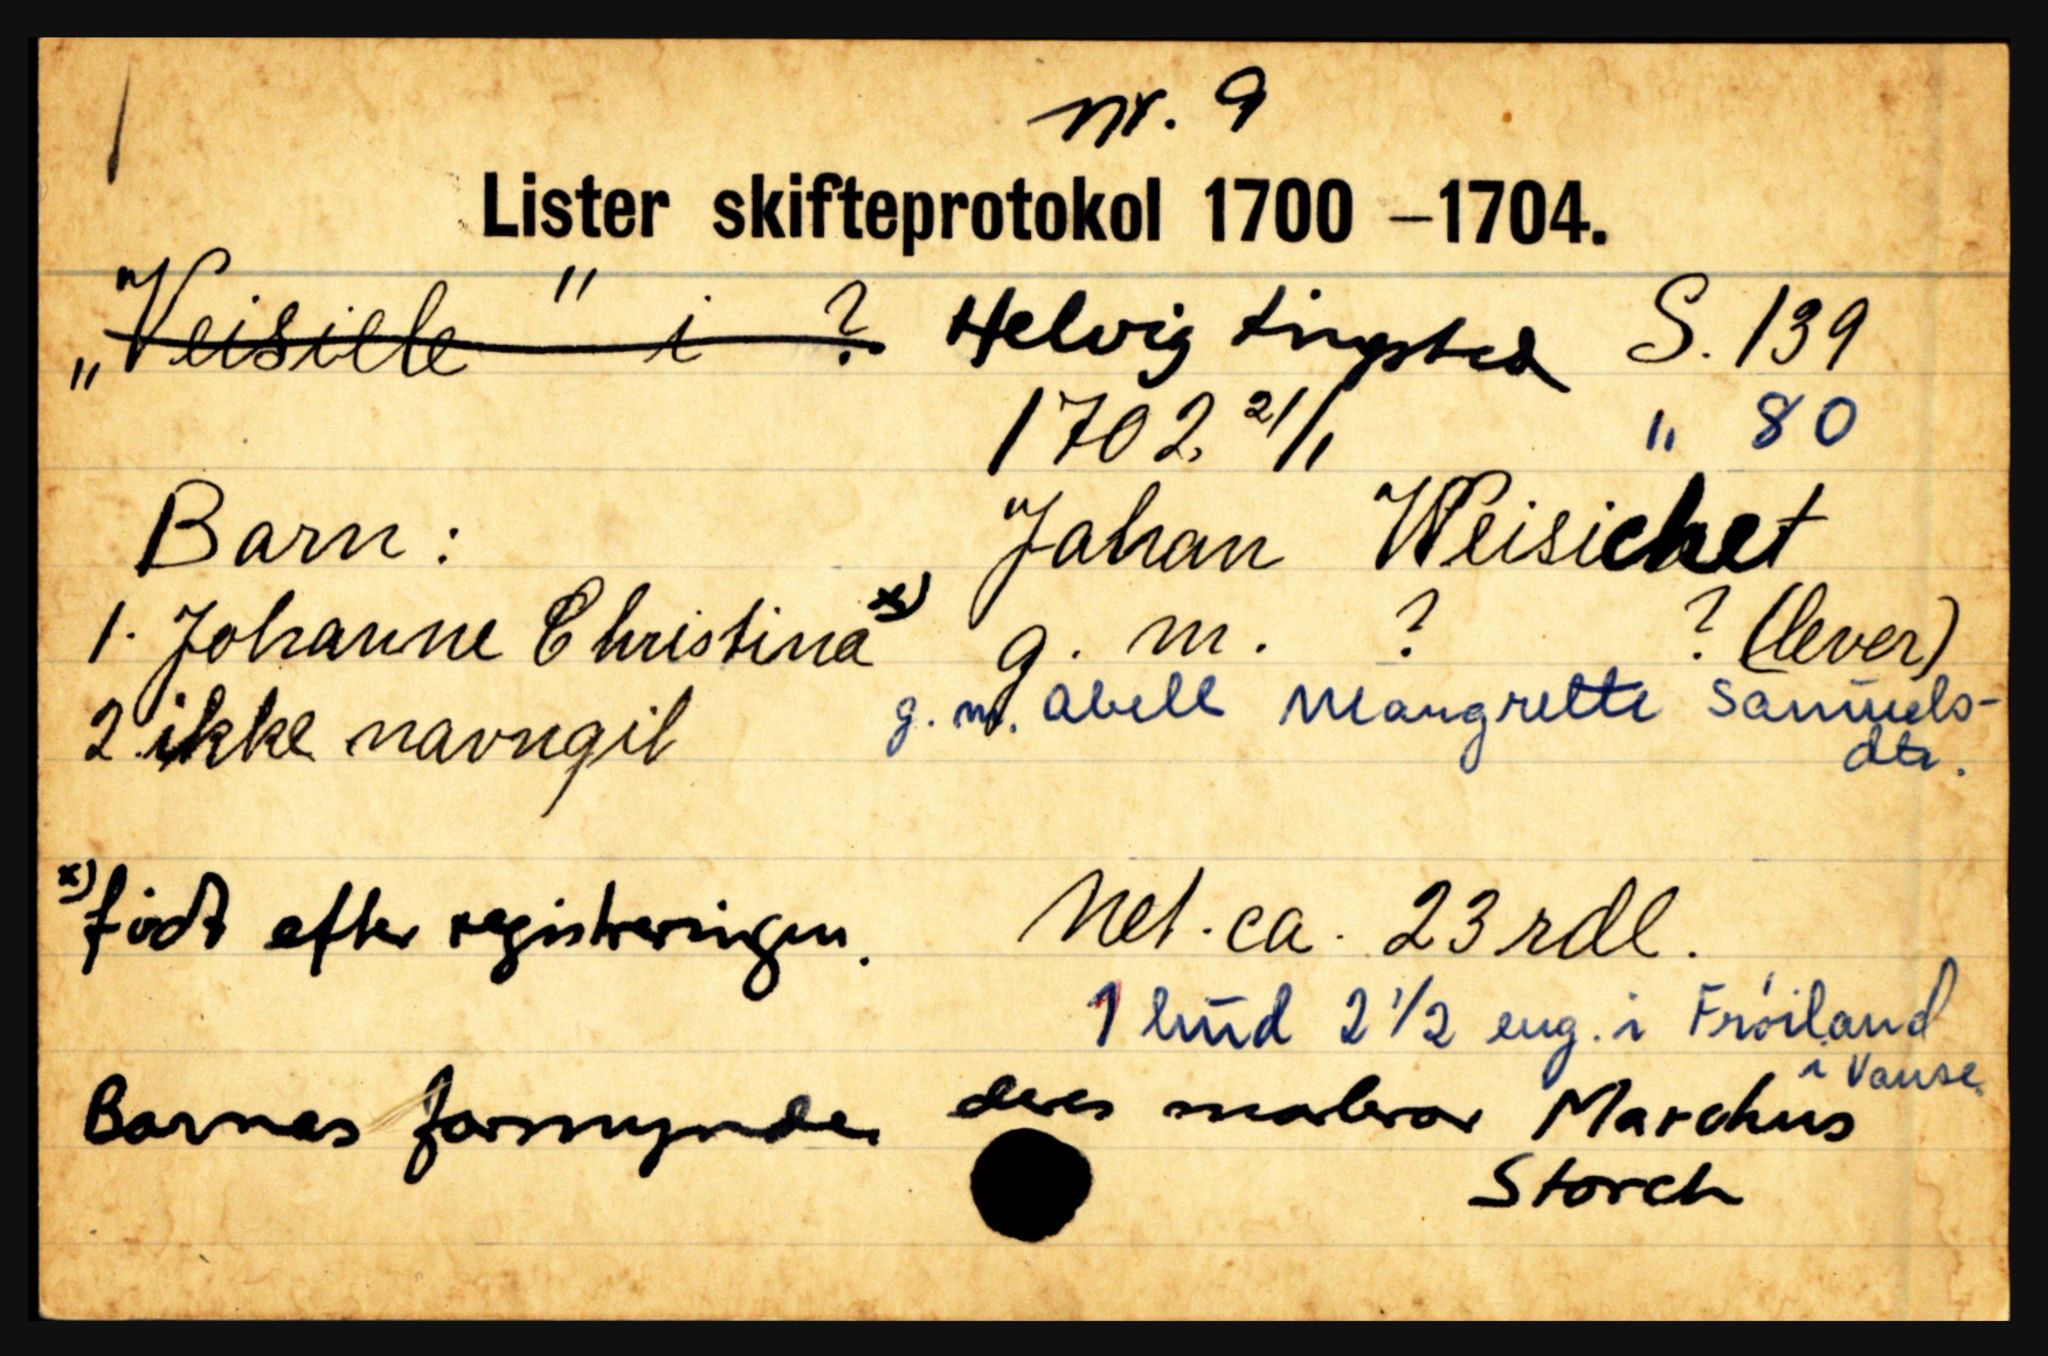 nr. 9
Lister skifteprotokol 1700 –1704.
„Veisille" i ? Helvig tingsted S. 139
1702 21/1 " 80
Barn: Johan Weisichet
1. Johanne Christina x) g. m. ? ? (lever)
2 ikke navngit g. m. Abell Mangrette Samuels-
dtr.
x) født efter registreringen. Net. ca. 23 rdl.
1 hud 2 1/2 eng. i Frøiland
i Vanse.
Barnas formynder deres morbror Marchus
Storch